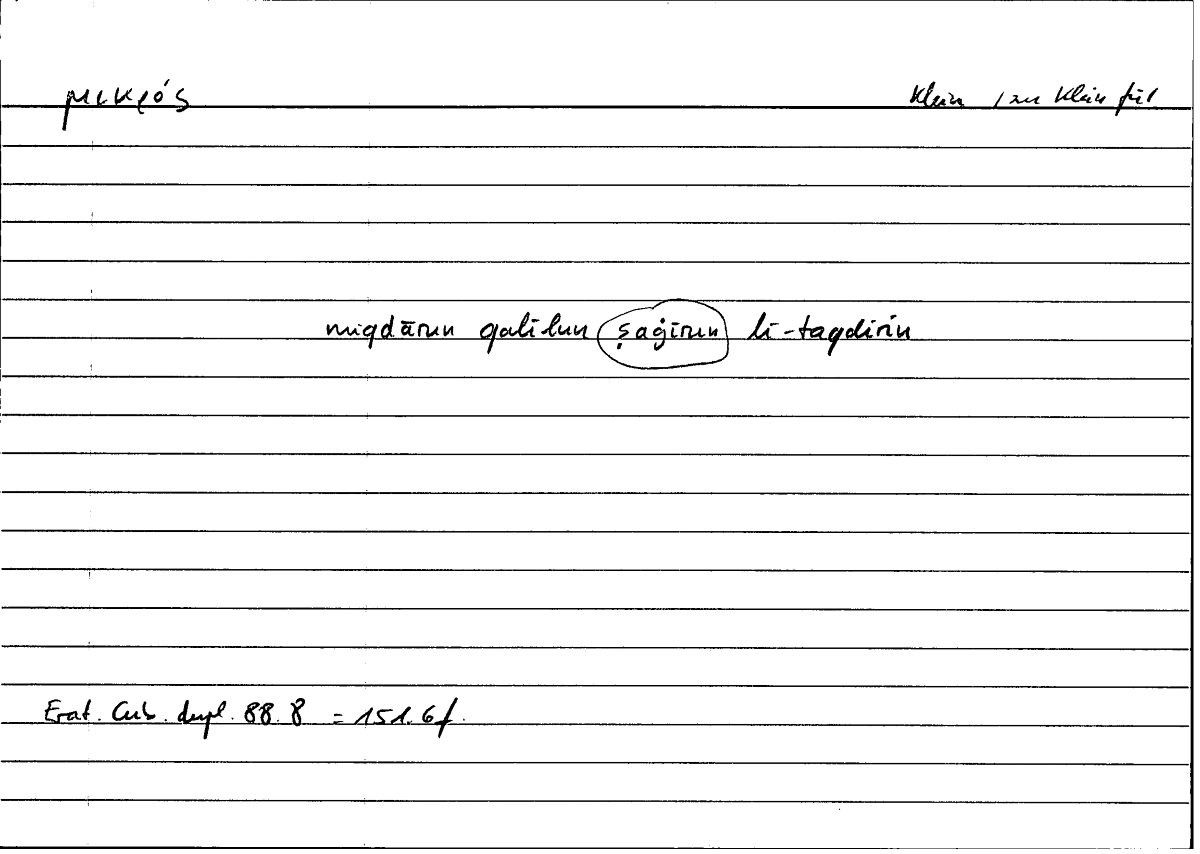 μικρός klein / zu klein für
miqdārun qalīlun ṣaġīrun li-taqdīrin
Erat. Cub. dupl. 88.8 = 151.6f.